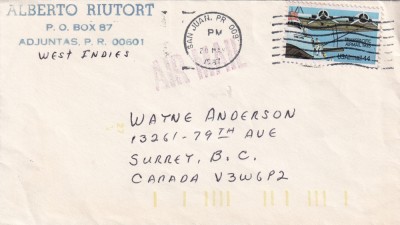 ALBERTO RIUTORT
P. O. BOX 87
ADJUNTAS, P. R. 00601
WEST INDIES
SAN JUAN, PR 009
PM
28 MAY
1987
AIR MAIL
USAirmail 44
WAYNE ANDERSON
13261-79TH AVE
SURREY, B.C.
CANADA V3W6P2